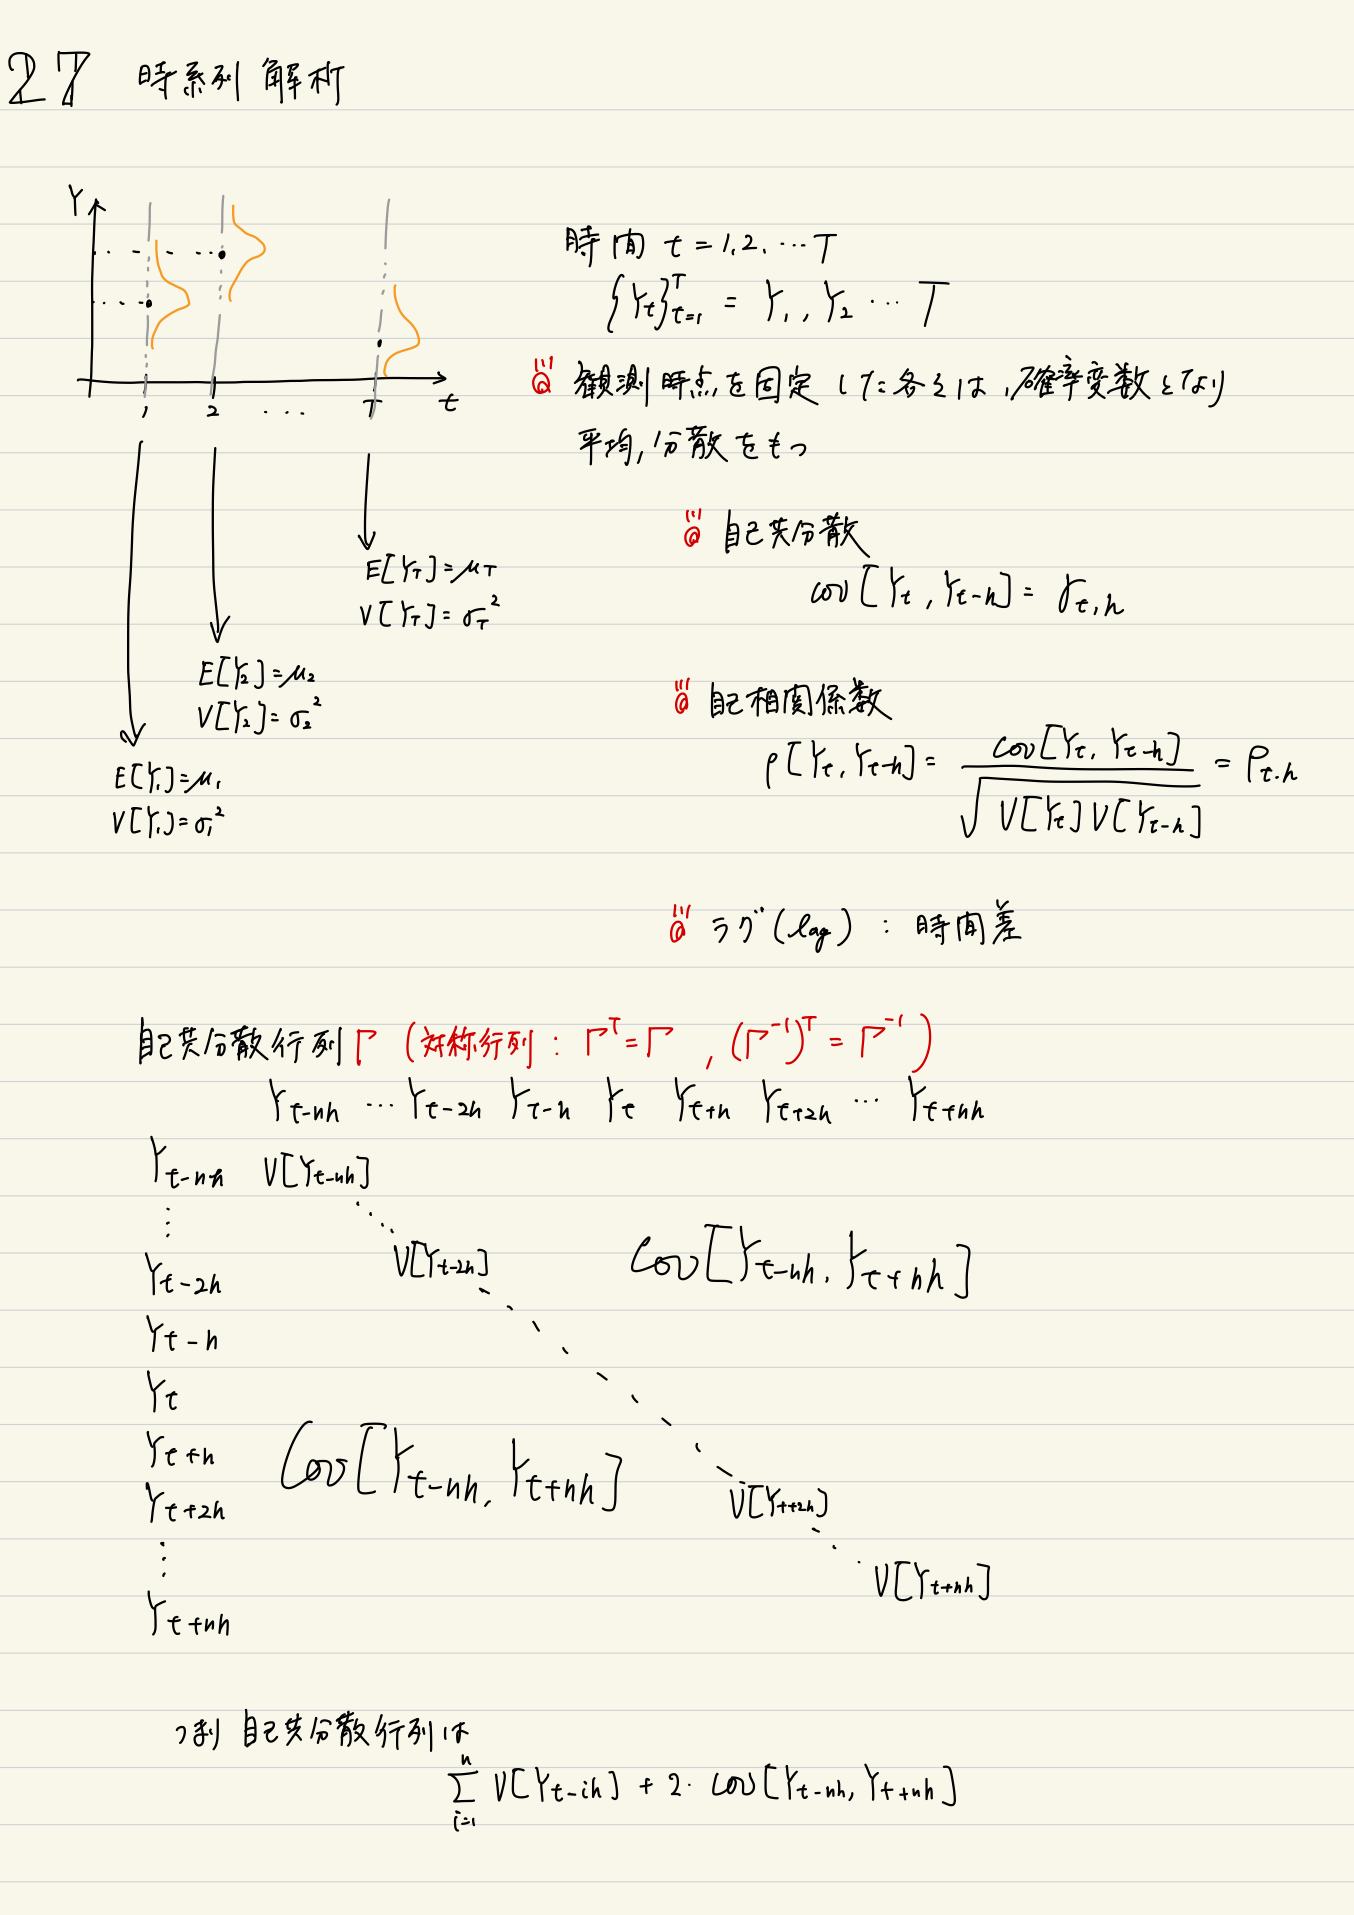 27 時系列 解析
Y
1 2 ... T t
E[Y_T]=μ_T
V[Y_T]=σ_T^2
E[Y_2]=μ_2
V[Y_2]=σ_2^2
E[Y_1]=μ_1
V[Y_1]=σ_1^2
時間 t = 1, 2, ... T
{Y_t}_{t=1}^T = Y_1, Y_2 ... T
観測時点を固定した各Yは, 確率変数となり
平均, 分散をもつ
自己共分散
cov[Y_t, Y_{t-h}] = γ_{t,h}
自己相関係数
ρ[Y_t, Y_{t-h}] = cov[Y_t, Y_{t-h}] / √V[Y_t]V[Y_{t-h}] = ρ_{t,h}
ラグ(lag) : 時間差
自己共分散行列 Γ (対称行列 : Γ^T = Γ , (Γ^{-1})^T = Γ^{-1})
Y_{t-nh} ... Y_{t-2h} Y_{t-h} Y_t Y_{t+h} Y_{t+2h} ... Y_{t+nh}
Y_{t-nh} V[Y_{t-nh}]
⋮
Y_{t-2h} V[Y_{t-2h}] Cov[Y_{t-nh}, Y_{t+nh}]
Y_{t-h}
Y_t
Y_{t+h} Cov[Y_{t-nh}, Y_{t+nh}]
Y_{t+2h} V[Y_{t+2h}]
⋮
Y_{t+nh} V[Y_{t+nh}]
つまり 自己共分散行列は
Σ_{i=1}^n V[Y_{t-ih}] + 2· cov[Y_{t-nh}, Y_{t+nh}]